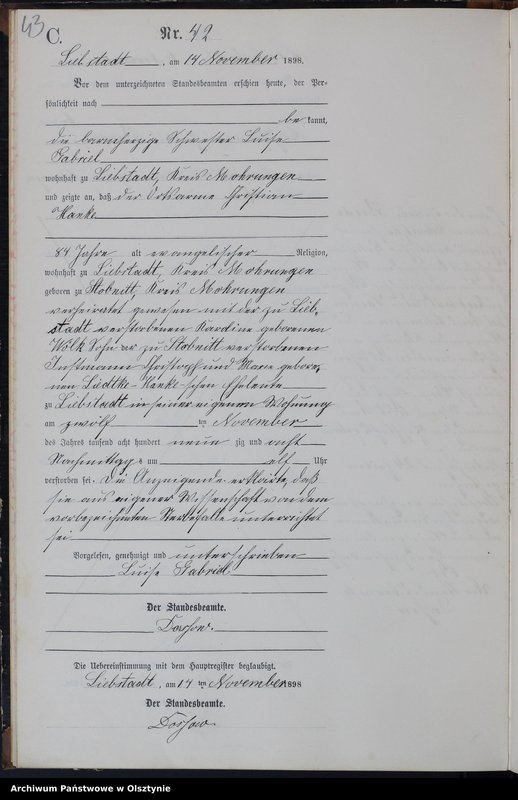 43
C.
Nr. 42
Liebstadt, am 14 November 1898.
Vor dem unterzeichneten Standesbeamten erschien heute, der Per-
sönlichkeit nach
be kannt,
die barmherzige Schwester Luise
Gabriel
wohnhaft zu Liebstadt, Kreis Mohrungen
und zeigte an, daß der Ortsarme Christian
Hanke
84 Jahre alt evangelischer Religion,
wohnhaft zu Liebstadt, Kreis Mohrungen
geboren zu Stobnitt, Kreis Mohrungen
verheiratet gewesen mit der zu Lieb-
stadt verstorbenen Kardine geborenen
Wölk Sohn der zu Stobnitt verstorbenen
Instmann Christoph und Marie gebore-
nen Liedtke-Hanke-schen Eheleute
zu Liebstadt in seiner eigenen Wohnung
am zwölf ten November
des Jahres tausend acht hundert neun zig und acht
Nachmittags um elf Uhr
verstorben sei. Die Anzeigende erklärte, daß
sie aus eigener Wissenschaft von dem
vorbezeichneten Sterbefalle unterrichtet
sei.
Vorgelesen, genehmigt und unterschrieben
Luise Gabriel
Der Standesbeamte.
Die Uebereinstimmung mit dem Hauptregister beglaubigt.
Liebstadt, am 14 ten November 1898
Der Standesbeamte.
Archiwum Państwowe w Olsztynie